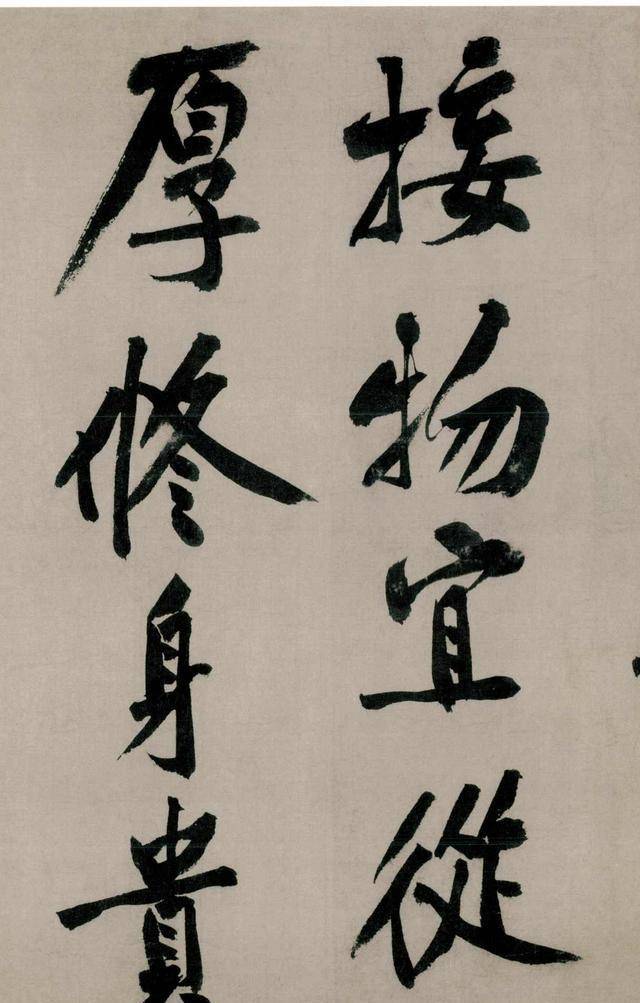 接物宜從
厚修身貴